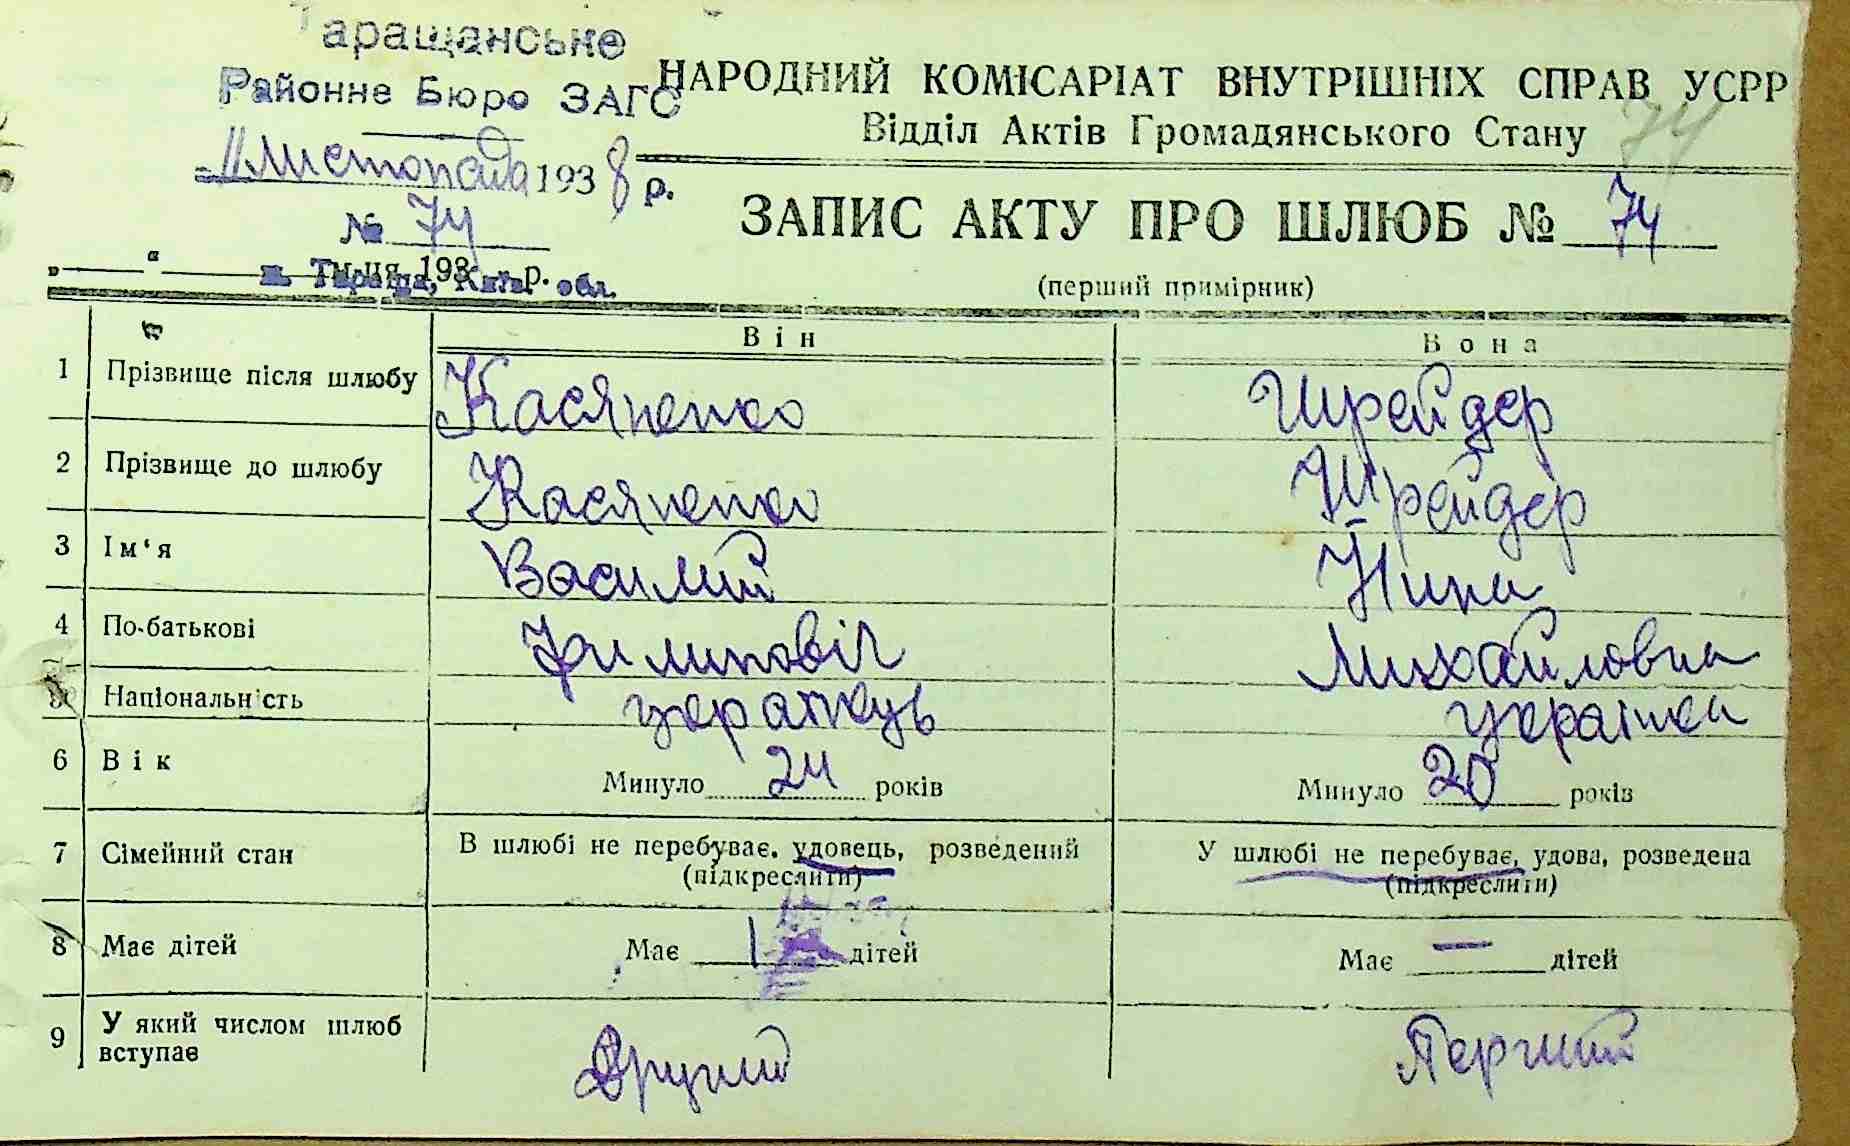 Таращанське
Районне Бюро ЗАГС
НАРОДНИЙ КОМІСАРІАТ ВНУТРІШНІХ СПРАВ УСРР
Відділ Актів Громадянського Стану
74
11 листопада 1938 р.
№ 74
ЗАПИС АКТУ ПРО ШЛЮБ № 74
„ “ 193 р.
м. Тараща, Київ. обл.
(перший примірник)
Він Вона
1 Прізвище після шлюбу Касяненко Шрейдер
2 Прізвище до шлюбу Касяненко Шрейдер
3 Ім‘я Василий Нина
4 По-батькові Филиповіч Михайловна
5 Національність українець українка
6 Вік Минуло 24 років Минуло 20 років
7 Сімейний стан В шлюбі не перебуває, удовець, розведений У шлюбі не перебуває, удова, розведена
(підкреслити) (підкреслити)
8 Має дітей Має 1 дітей Має — дітей
9 У який числом шлюб
вступає Другий Перший